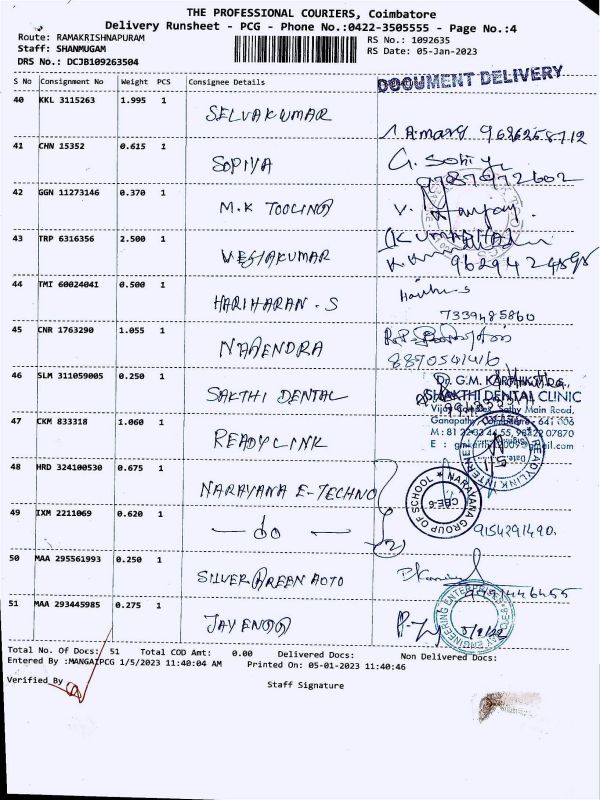 THE PROFESSIONAL COURIERS, Coimbatore
Delivery Runsheet - PCG - Phone No.:0422-3505555 - Page No.:4
Route: RAMAKRISHNAPURAM
Staff: SHANMUGAM
DRS No.: DCJB109263504
RS No.: 1092635
RS Date: 05-Jan-2023
S No Consignment No Weight PCS Consignee Details
DOCUMENT DELIVERY
40 KKL 3115263 1.995 1 SELVAKUMAR
41 CHN 15352 0.615 1 SOPIYA
G. Sophiya
42 GGN 11273146 0.370 1 M.K TOOLING
43 TRP 6316356 2.500 1 VESIAKUMAR
44 TMI 60024041 0.500 1 HARIHARAN . S
7339485860
45 CNR 1763290 1.055 1 NARENDRA
8870541416
46 SLM 311059005 0.250 1 SAKTHI DENTAL
Dr. G.M.
SHAKTHI DENTAL CLINIC
Main Road,
Ganapathy, Coimbatore - 641 006
47 CKM 833318 1.060 1 READYLINK
48 HRD 324100530 0.675 1 NARAYANA E-TECHNO
NARAYANA GROUP OF SCHOOL
CBE-6
49 IXM 2211069 0.620 1 — do —
9154291490.
50 MAA 295561993 0.250 1 SILVER GREEN AOTO
51 MAA 293445985 0.275 1 JAYENGG
Total No. Of Docs: 51 Total COD Amt: 0.00 Delivered Docs: Non Delivered Docs:
Entered By :MANGAIPCG 1/5/2023 11:40:04 AM Printed On: 05-01-2023 11:40:46
Verified By
Staff Signature